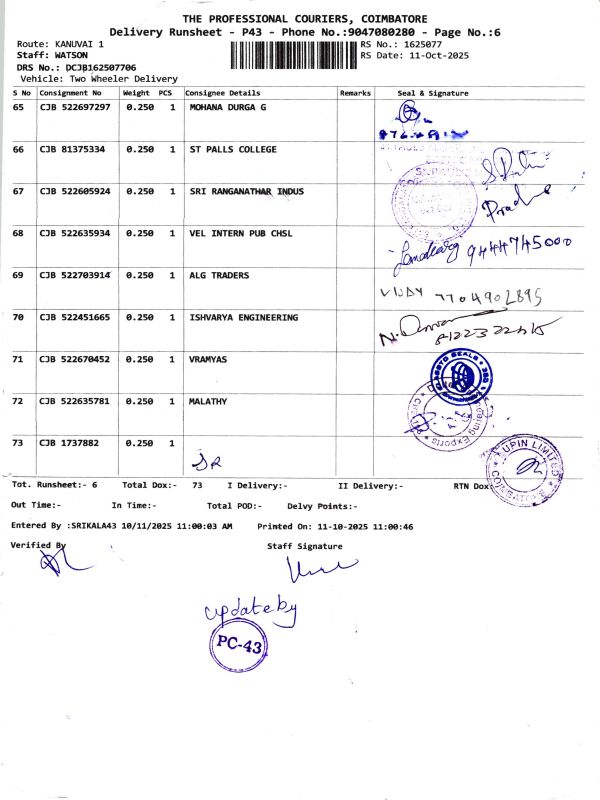 THE PROFESSIONAL COURIERS, COIMBATORE
Delivery Runsheet - P43 - Phone No.:9047080280 - Page No.:6
Route: KANUVAI 1
RS No.: 1625077
Staff: WATSON
RS Date: 11-Oct-2025
DRS No.: DCJB162507706
Vehicle: Two Wheeler Delivery
S No Consignment No Weight PCS Consignee Details Remarks Seal & Signature
65 CJB 522697297 0.250 1 MOHANA DURGA G
66 CJB 81375334 0.250 1 ST PALLS COLLEGE
67 CJB 522605924 0.250 1 SRI RANGANATHAR INDUS
68 CJB 522635934 0.250 1 VEL INTERN PUB CHSL
9444745000
69 CJB 522703914 0.250 1 ALG TRADERS
VIJAY 7704902895
70 CJB 522451665 0.250 1 ISHVARYA ENGINEERING
71 CJB 522670452 0.250 1 VRAMYAS
72 CJB 522635781 0.250 1 MALATHY
73 CJB 1737882 0.250 1
LUPIN LIMITED
COIMBATORE
Tot. Runsheet:- 6 Total Dox:- 73 I Delivery:- II Delivery:- RTN Dox
Out Time:- In Time:- Total POD:- Delvy Points:-
Entered By :SRIKALA43 10/11/2025 11:00:03 AM Printed On: 11-10-2025 11:00:46
Verified By Staff Signature
update by
PC-43